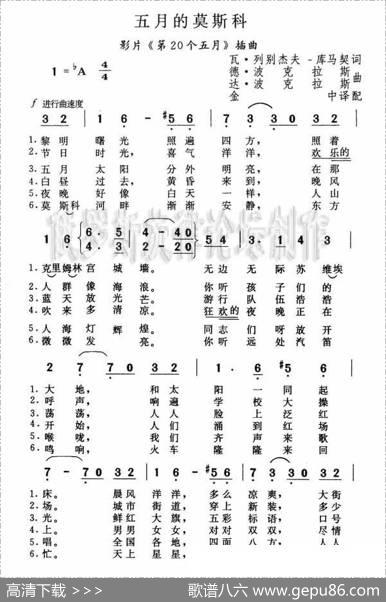 五月的莫斯科
影片《第20个五月》插曲
1=♭A 4/4
瓦·列别杰夫-库马契词
德·波克拉斯
达·波克拉斯 曲
金中译配
f 进行曲速度
3 2 1 6 - #5 6 7 3 0 3 0 3 2
1.黎明曙光照遍四方,照着
2.节日时光,喜气洋洋,欢乐的
3.五月太阳分外明亮,在那
4.白昼过去,黄昏来到,晚风
5.夜晚好像白天一样,人山
6.莫斯科河畔渐渐安静,东方
1.克里姆林宫城墙。无边无际苏维埃
2.人群像海浪。你听孩子们的
3.蓝天放光芒。游行队伍浩浩
4.吹来多清凉。狂欢的夜晚正在
5.人海灯辉煌。同志们呀放开
6.微微发亮。你听远处汽笛
2 7 7 0 3 2 1 #5 6
1.大地,和太阳一同起
2.呼声,响遍学校大操
3.荡荡,人人脸上泛红
4.开始,人们涌到红场
5.喉咙,我们齐声来歌
6.鸣响,火车隆隆来回
7 - 7 0 3 2 1 6 - #5 6 7 3 0 3 0 3 2
1.床。晨风洋洋,多么凉爽,大街
2.场。城市街道,穿上新装,多少
3.光。鲜红大旗,五彩标语,口号
4.上。男男女女,对对双双,尽情
5.唱。全国各地,四面八方,人人
6.忙。天上星星,
高清下载 >>>> 歌谱八六 www.gepu86.com